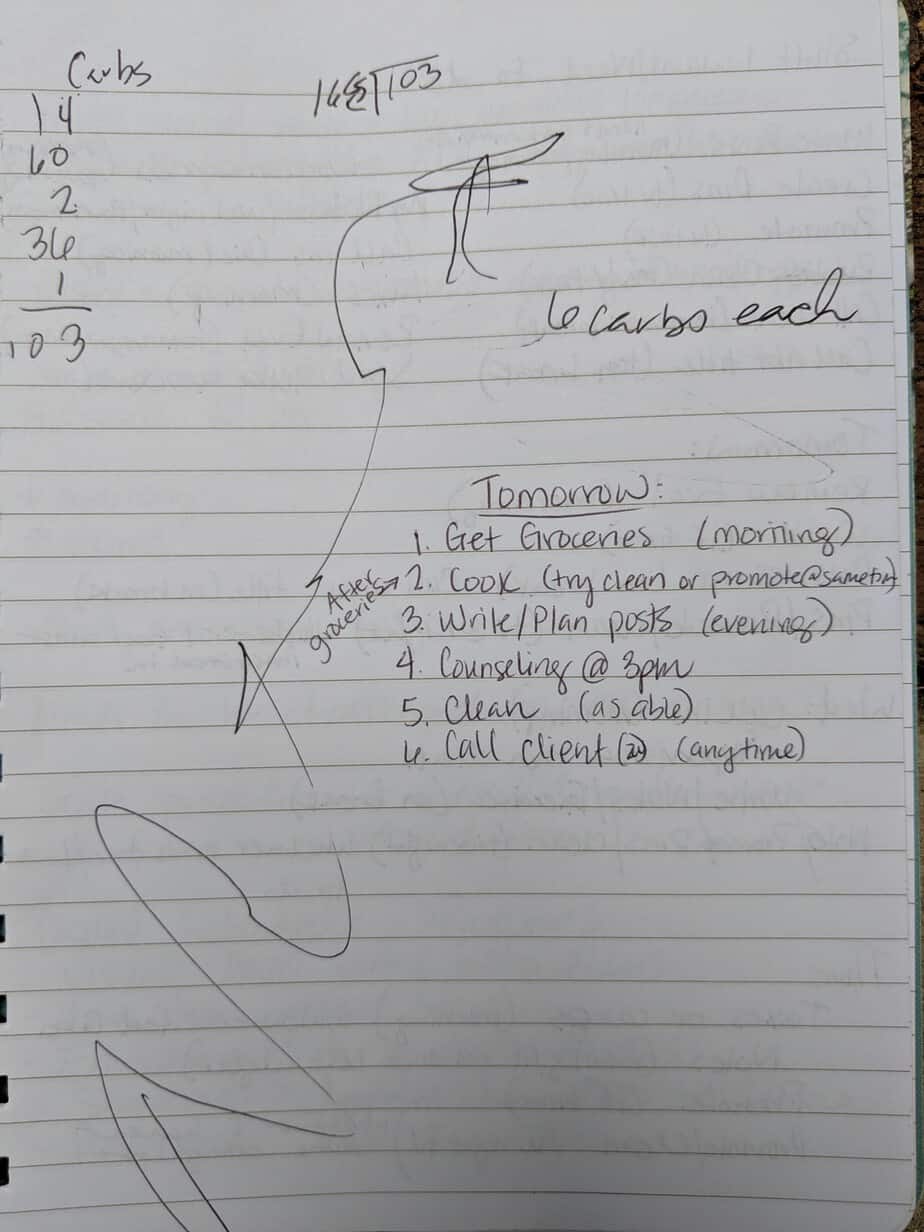 Carbs
14
60
2
36
1
103
16 103
6 carbs each
Tomorrow:
1. Get Groceries (morning)
After groceries → 2. Cook (try clean or promote @
3. Write/Plan posts (evening)
4. Counseling @ 3pm
5. Clean (as able)
6. Call client (anytime)